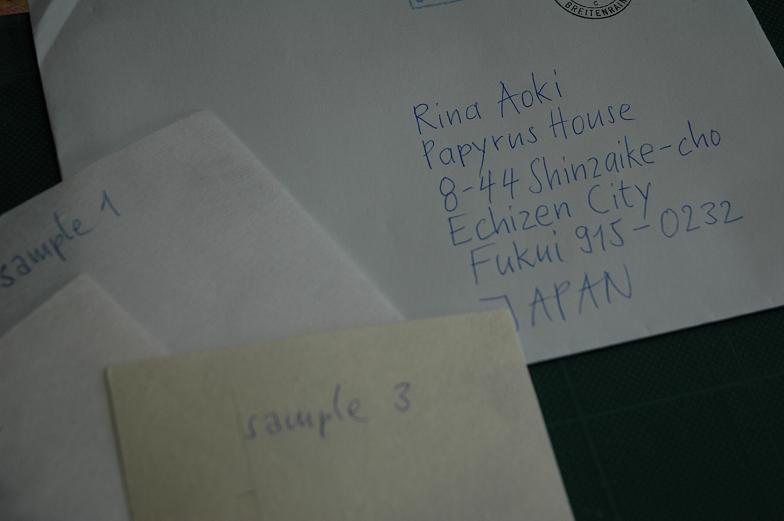 C
BREITENRAIN
Rina Aoki
Papyrus House
8-44 Shinzaike-cho
Echizen City
Fukui 915-0232
JAPAN
sample 1
sample 3